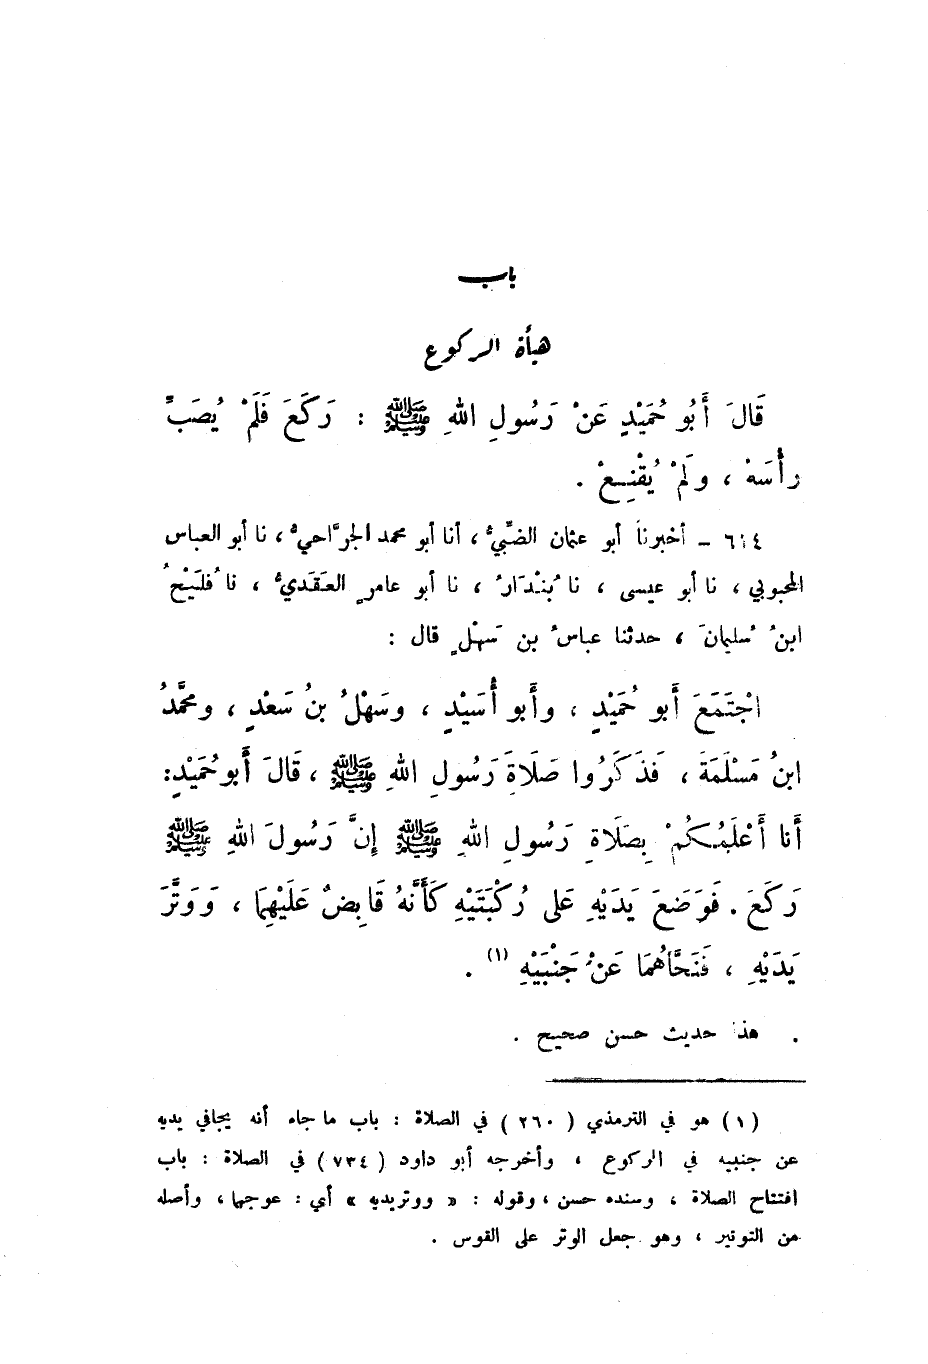 باب
هيأة الركوع
قَالَ أَبُو حُمَيْدٍ عَنْ رَسُولِ اللهِ ﷺ : رَكَعَ فَلَمْ يُصَبِّ
رأْسَهُ ، ولَمْ يُقْنِعْ .
٦١٤ – أخبرنا أبو عثمان الضّبّيُّ ، أنا أبو محمد الجرَّاحيُّ ، نا أبو العباس
المحبوبي ، نا أبو عيسى ، نا بُنْدَارُ ، نا أبو عامرٍ العَقَديُّ ، نا فُلَيْحُ
ابنُ سُليمانَ ، حدثنا عباسُ بن سَهْلٍ قال :
اجْتَمَعَ أَبو حُمَيْدٍ ، وأَبو أُسَيْدٍ ، وسَهْلُ بنُ سَعْدٍ ، ومحمَّدُ
ابنُ مَسْلَمَةَ ، فَذَكَرُوا صَلَاةَ رَسُولِ اللهِ ﷺ ، قَالَ أَبو حُمَيْدٍ:
أَنا أَعْلَمُكُمْ بِصَلَاةِ رَسُولِ اللهِ ﷺ إِنَّ رَسُولَ اللهِ ﷺ
رَكَعَ . فَوَضَعَ يَدَيْهِ عَلى رُكْبَتَيْهِ كَأَنَّهُ قَابِضٌ عَلَيْهِمَا ، وَوَتَّرَ
يَدَيْهِ ، فَنَحَّاهُمَا عَنْ جَنْبَيْهِ (١) .
. هذا حديث حسن صحيح .
(١) هو في الترمذي ( ٢٦٠ ) في الصلاة : باب ما جاء أنه يجافي يديه
عن جنبيه في الركوع ، وأخرجه أبو داود ( ٧٣٤ ) في الصلاة : باب
افتتاح الصلاة ، وسنده حسن ، وقوله : « ووتر يديه » أي : عوجها ، وأصله
من التوتير ، وهو جعل الوتر على القوس .